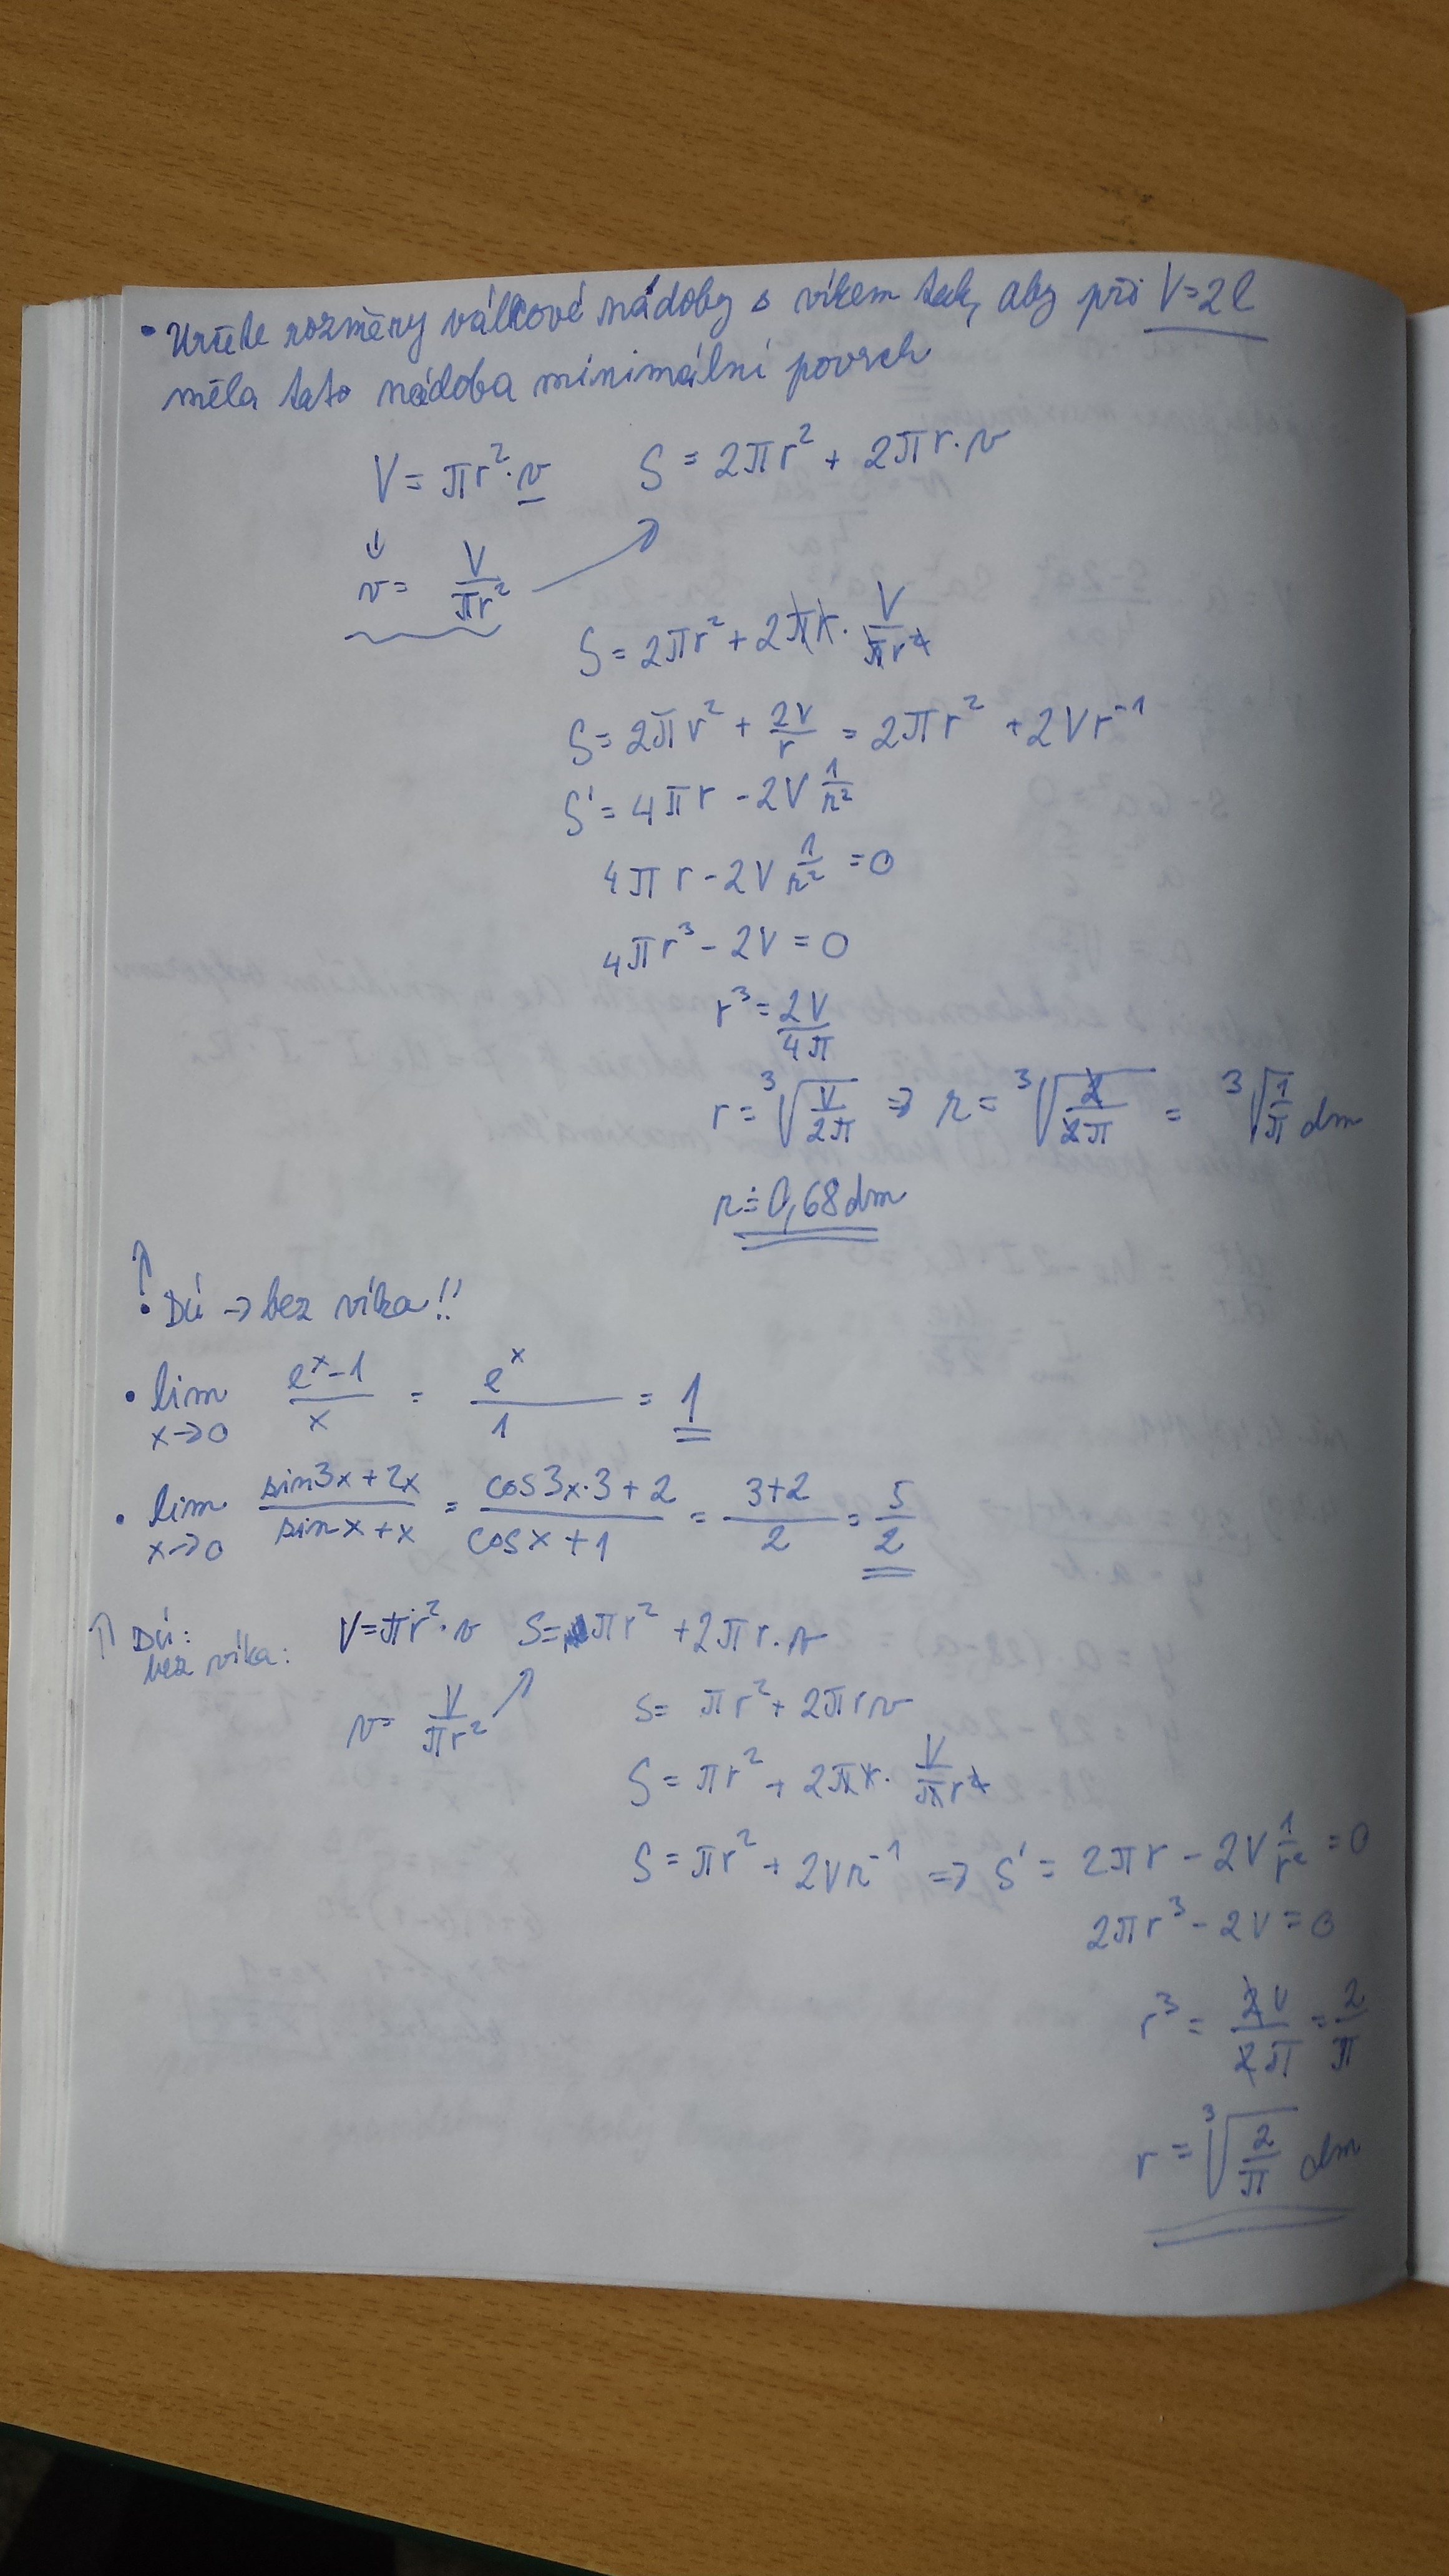 • Určete rozměry válcové nádoby s víkem tak, aby při V=2l
měla tato nádoba minimální povrch
V = πr²·v   S = 2πr² + 2πr·v
↓
v = V/(πr²)
S = 2πr² + 2πr · V/(πr²)
S = 2πr² + 2V/r = 2πr² + 2Vr⁻¹
S' = 4πr - 2V 1/r²
4πr - 2V 1/r² = 0
4πr³ - 2V = 0
r³ = 2V/4π
r = ³√(V/2π) ⇒ r = ³√(2/2π) = ³√(1/π) dm
r ≐ 0,68 dm
↑
• DÚ → bez víka!!
• lim x→0 (eˣ-1)/x = eˣ/1 = 1
• lim x→0 (sin3x+2x)/(sinx+x) = (cos3x·3+2)/(cosx+1) = (3+2)/2 = 5/2
↑ DÚ:
bez víka:   V=πr²·v   S= πr² + 2πr·v
v = V/(πr²)   S = πr² + 2πrv
S = πr² + 2πr · V/(πr²)
S = πr² + 2Vr⁻¹ ⇒ S' = 2πr - 2V 1/r² = 0
2πr³ - 2V = 0
r³ = 2V/2π = 2/π
r = ³√(2/π) dm